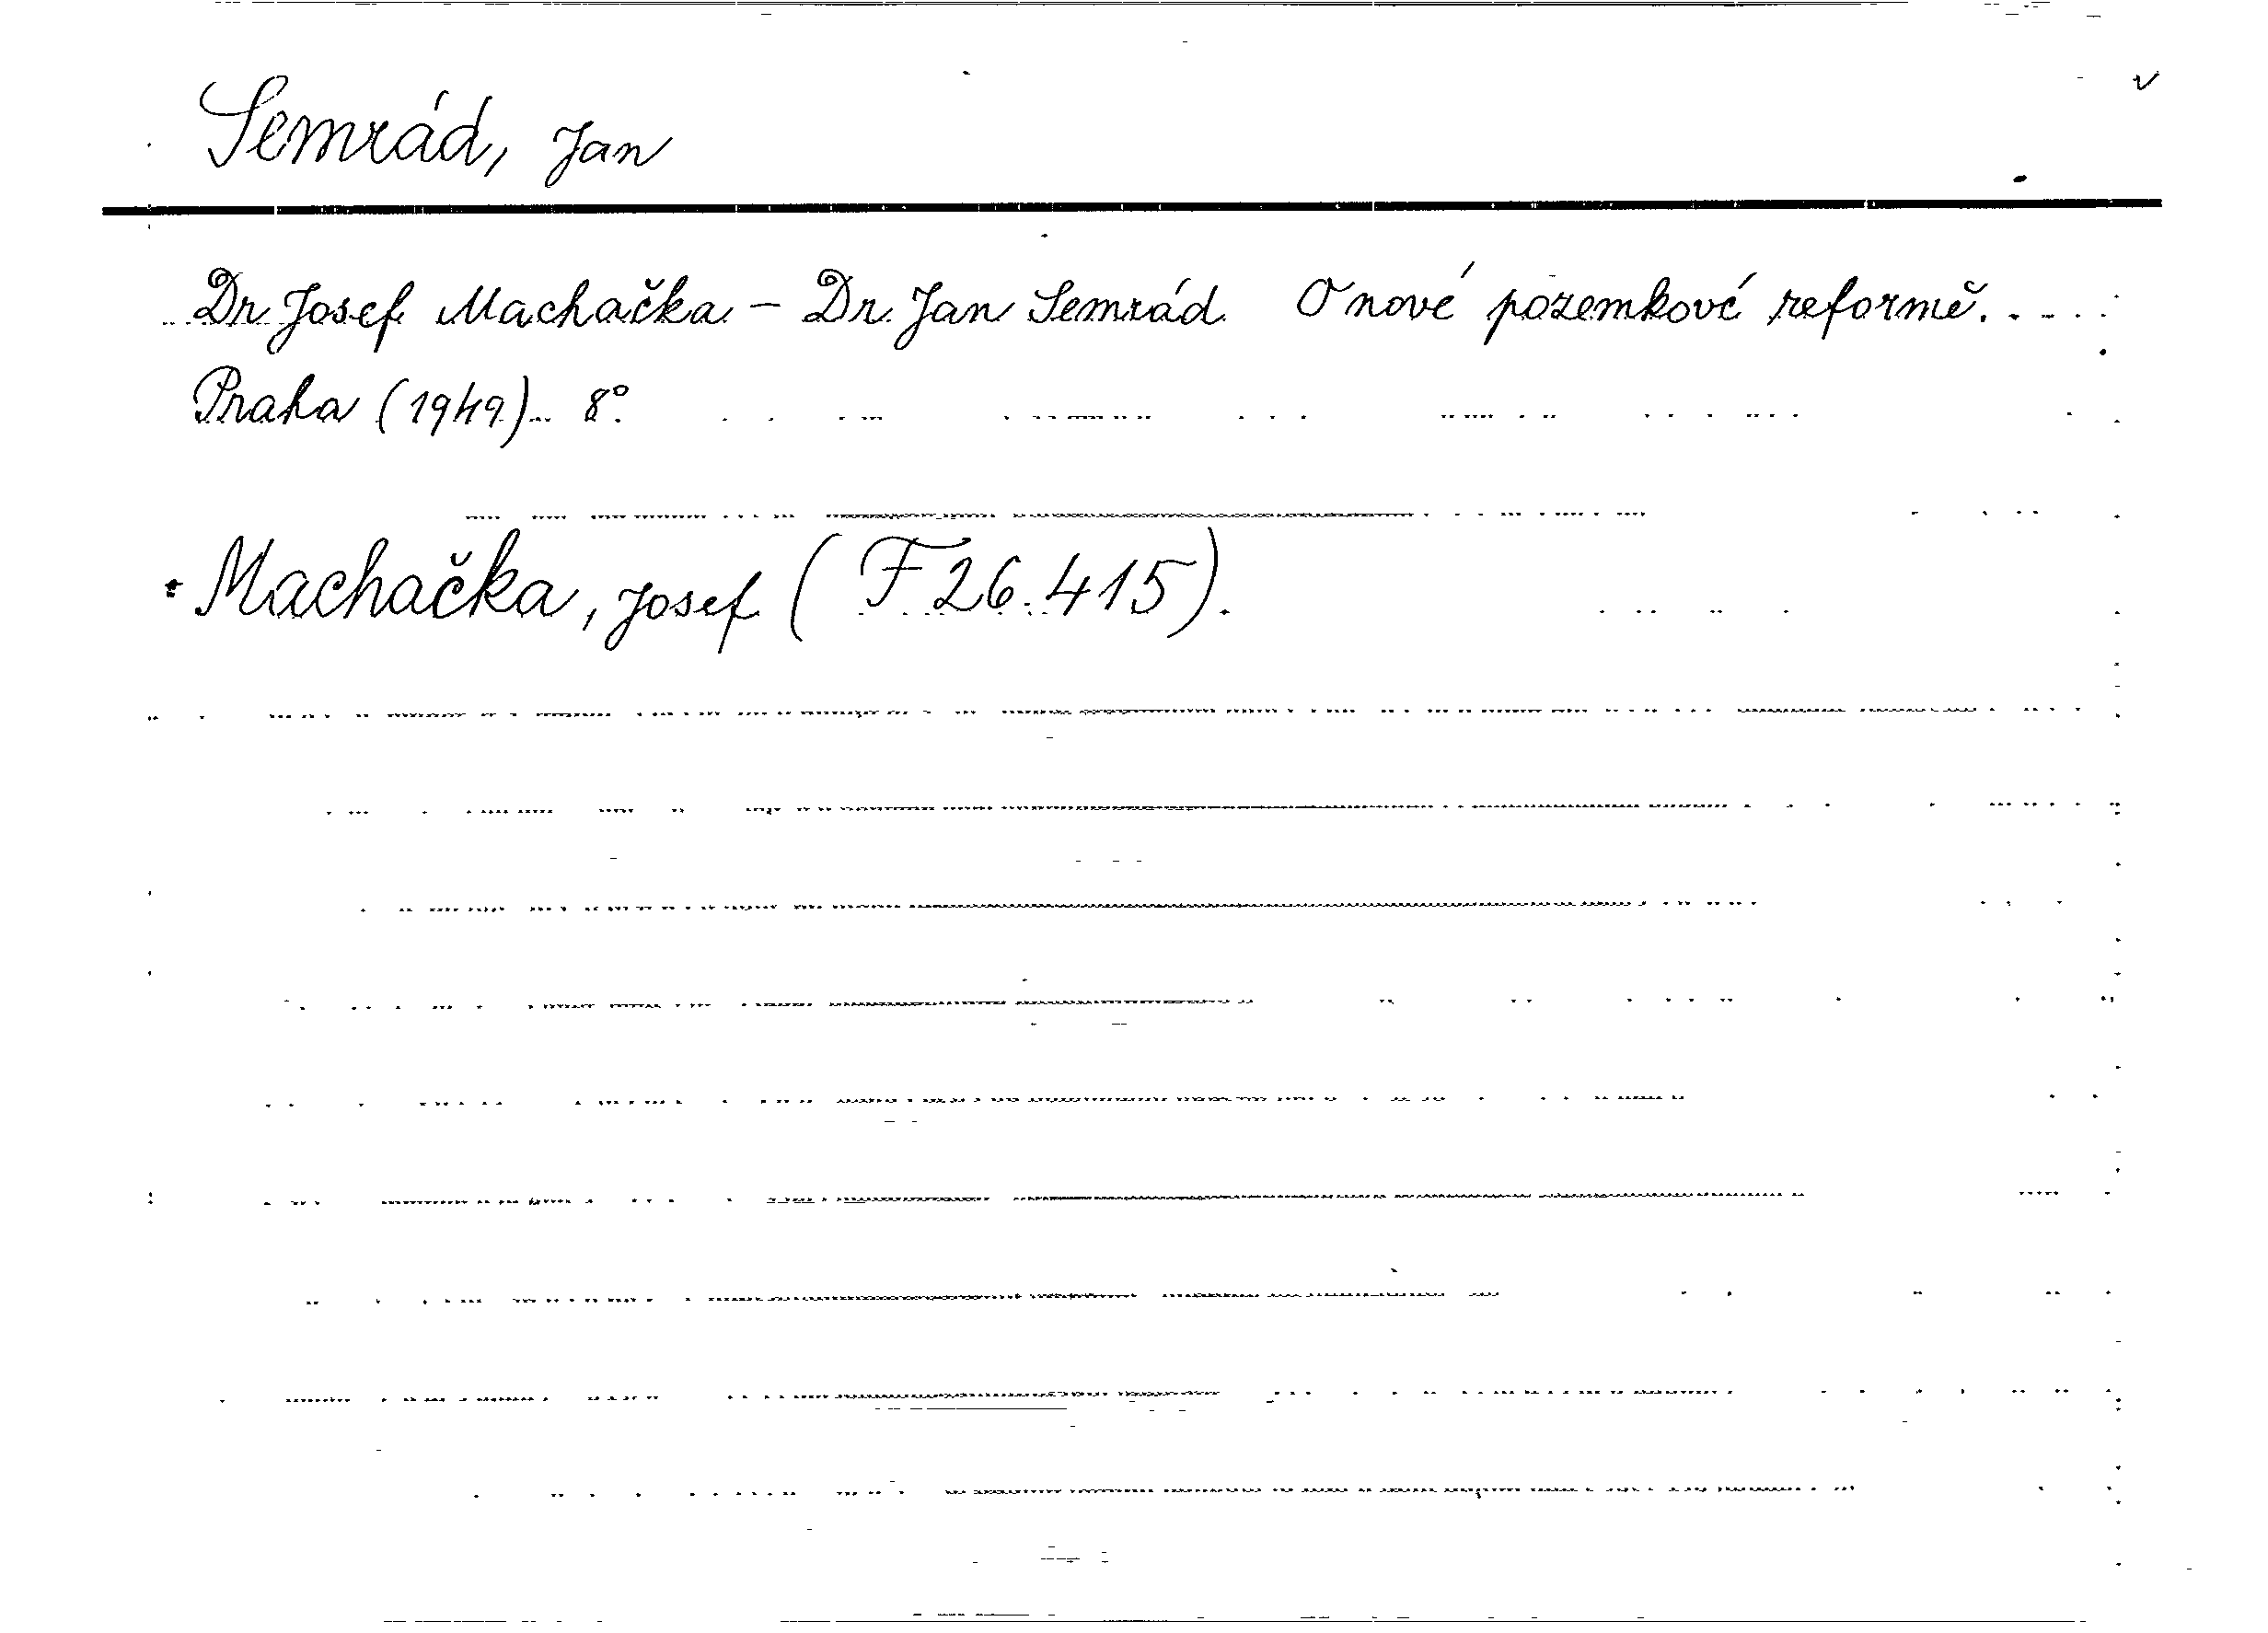 Semrád, Jan
Dr. Josef Machačka – Dr. Jan Semrád. O nové pozemkové reformě.
Praha (1949). 8°.
Machačka, Josef (F 26.415).